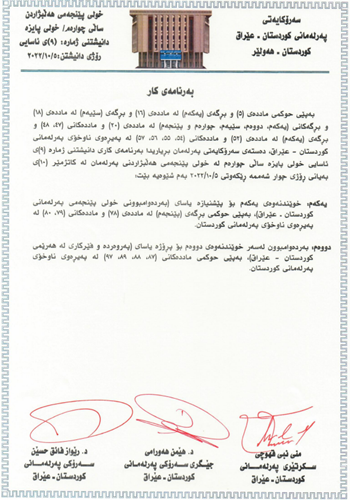 سەرۆکایەتی
پەرلەمانی کوردستان - عێراق
کوردستان - هەولێر
خولی پێنجەمی هەڵبژاردن
ساڵی چوارەم/ خولی پایزە
دانیشتنی ژمارە: (٩)ی ئاسایی
ڕۆژی دانیشتن: ٢٠٢٢/١٠/٥
بەرنامەی کار
بەپێی حوکمی ماددەی (٥) و بڕگەی (یەکەم) لە ماددەی (١٦) و بڕگەی (سێیەم) لە ماددەی (١٨)
و بڕگەکانی (یەکەم، دووەم، سێیەم، چوارەم و پێنجەم) لە ماددەی (٢٠) و ماددەکانی (٤٧، ٤٨) و
بڕگەی (یەکەم) لە ماددەی (٥٣) و ماددەکانی (٥٤، ٥٥، ٥٦، ٥٧) لە پەیڕەوی ناوخۆی پەرلەمانی
کوردستان - عێراق، دەستەی سەرۆکایەتی پەرلەمان بڕیاریدا بەرنامەی کاری دانیشتنی ژمارە (٩)ی
ئاسایی خولی پایزەی ساڵی چوارەم لە خولی پێنجەمی هەڵبژاردنی پەرلەمان لە کاتژمێر (١٠)ی
بەیانی ڕۆژی چوار شەممە ڕێکەوتی ٢٠٢٢/١٠/٥ بەم شێوەیە بێت:
یەکەم: خوێندنەوەی یەکەم بۆ پێشنیازە یاسای (بەردەوامبوونی خولی پێنجەمی پەرلەمانی
کوردستان - عێراق)، بەپێی حوکمی بڕگەی (پێنجەم) لە ماددەی (٧٨) و ماددەکانی (٧٩، ٨٠) لە
پەیڕەوی ناوخۆی پەرلەمانی کوردستان.
دووەم: بەردەوامبوون لەسەر خوێندنەوەی دووەم بۆ پڕۆژە یاسای (پەروەردە و فێرکاری لە هەرێمی
کوردستان - عێراق)، بەپێی حوکمی ماددەکانی (٨٧، ٨٨، ٨٩، ٩٧) لە پەیڕەوی ناوخۆی
پەرلەمانی کوردستان.
منی نبی قهوچی
سکرتێری پەرلەمانی
کوردستان - عێراق
د. هێمن هەورامی
جێگری سەرۆکی پەرلەمانی
کوردستان - عێراق
د. ڕێواز فائق حسێن
سەرۆکی پەرلەمانی
کوردستان - عێراق